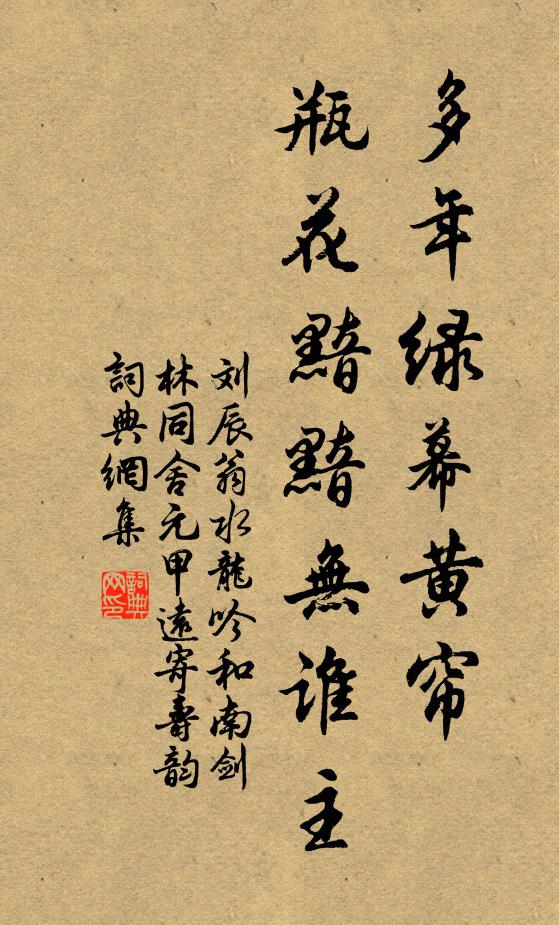 多年绿幕黄帘
瓶花黯黯無谁主
刘辰翁水龍吟和南剑
林同舍元甲遠寄壽韵
詞典網集
詞典网印